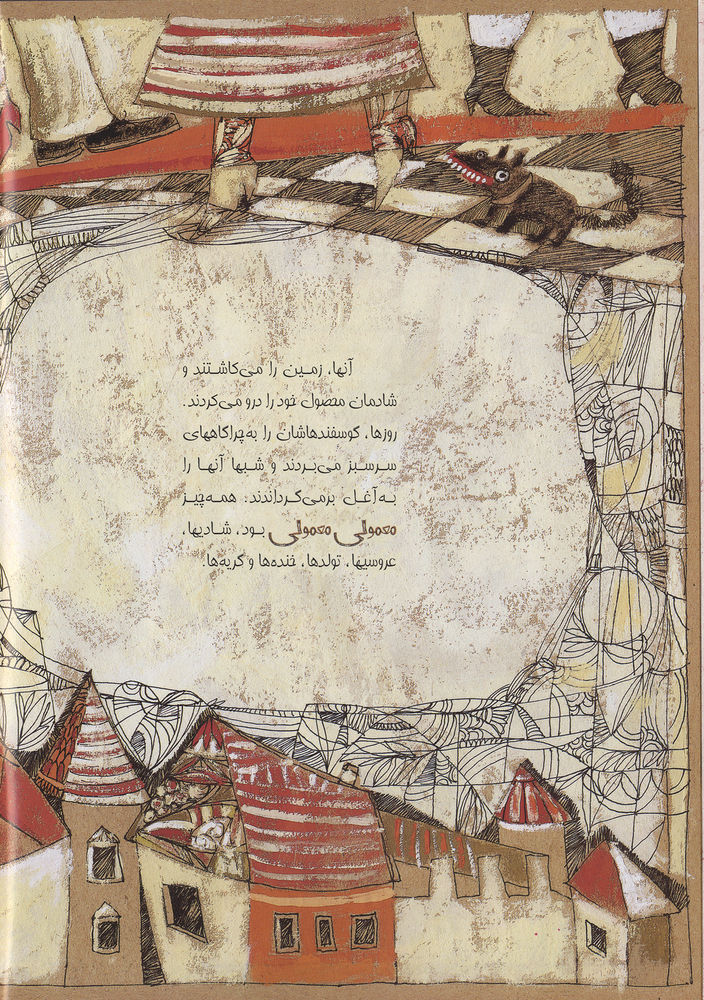 آنها، زمین را می‌کاشتند و
شادمان محصول خود را درو می‌کردند.
روزها، گوسفندهاشان را به‌چراگاههای
سرسبز می‌بردند و شبها آنها را
به‌آغل برمی‌گرداندند؛ همه‌چیز
معمولی معمولی بود، شادیها،
عروسیها، تولدها، خنده‌ها و گریه‌ها.